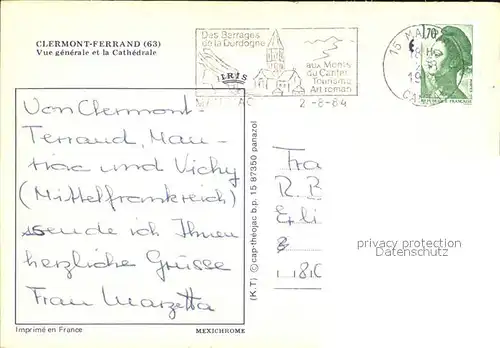 CLERMONT-FERRAND (63)
Vue générale et la Cathédrale
Des Barrages
de la Dordogne
aux Monts
du Cantal
Tourisme
Art roman
2-8-84
IRIS
15 MA
18H
19
CA
1,70
REPUBLIQUE FRANÇAISE
Von Clermont-
Ferrand, Mau-
riac und Vichy
(Mittelfrankreich)
sende ich Ihnen
herzliche Grüsse
Frau Marzetta
(K.T) © cap-théojac b.p. 15 87350 panazol
Fra
R. B
Erli
privacy protection
Datenschutz
Imprimé en France
MEXICHROME